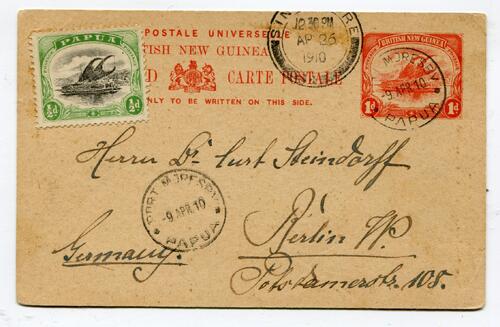 POSTALE UNIVERSELLE
BRITISH NEW GUINEA
CARTE POSTALE
ONLY TO BE WRITTEN ON THIS SIDE.
PAPUA
½d ½d
SINGAPORE
12 30 PM
AP 26
1910
BRITISH NEW GUINEA
1d 1d
PORT MORESBY
-9 APR.10
PAPUA
Herrn Dr. Curt Steindorff
PORT MORESBY
-9 APR.10
PAPUA
Berlin W.
Germany.
Potsdamerstr. 108.